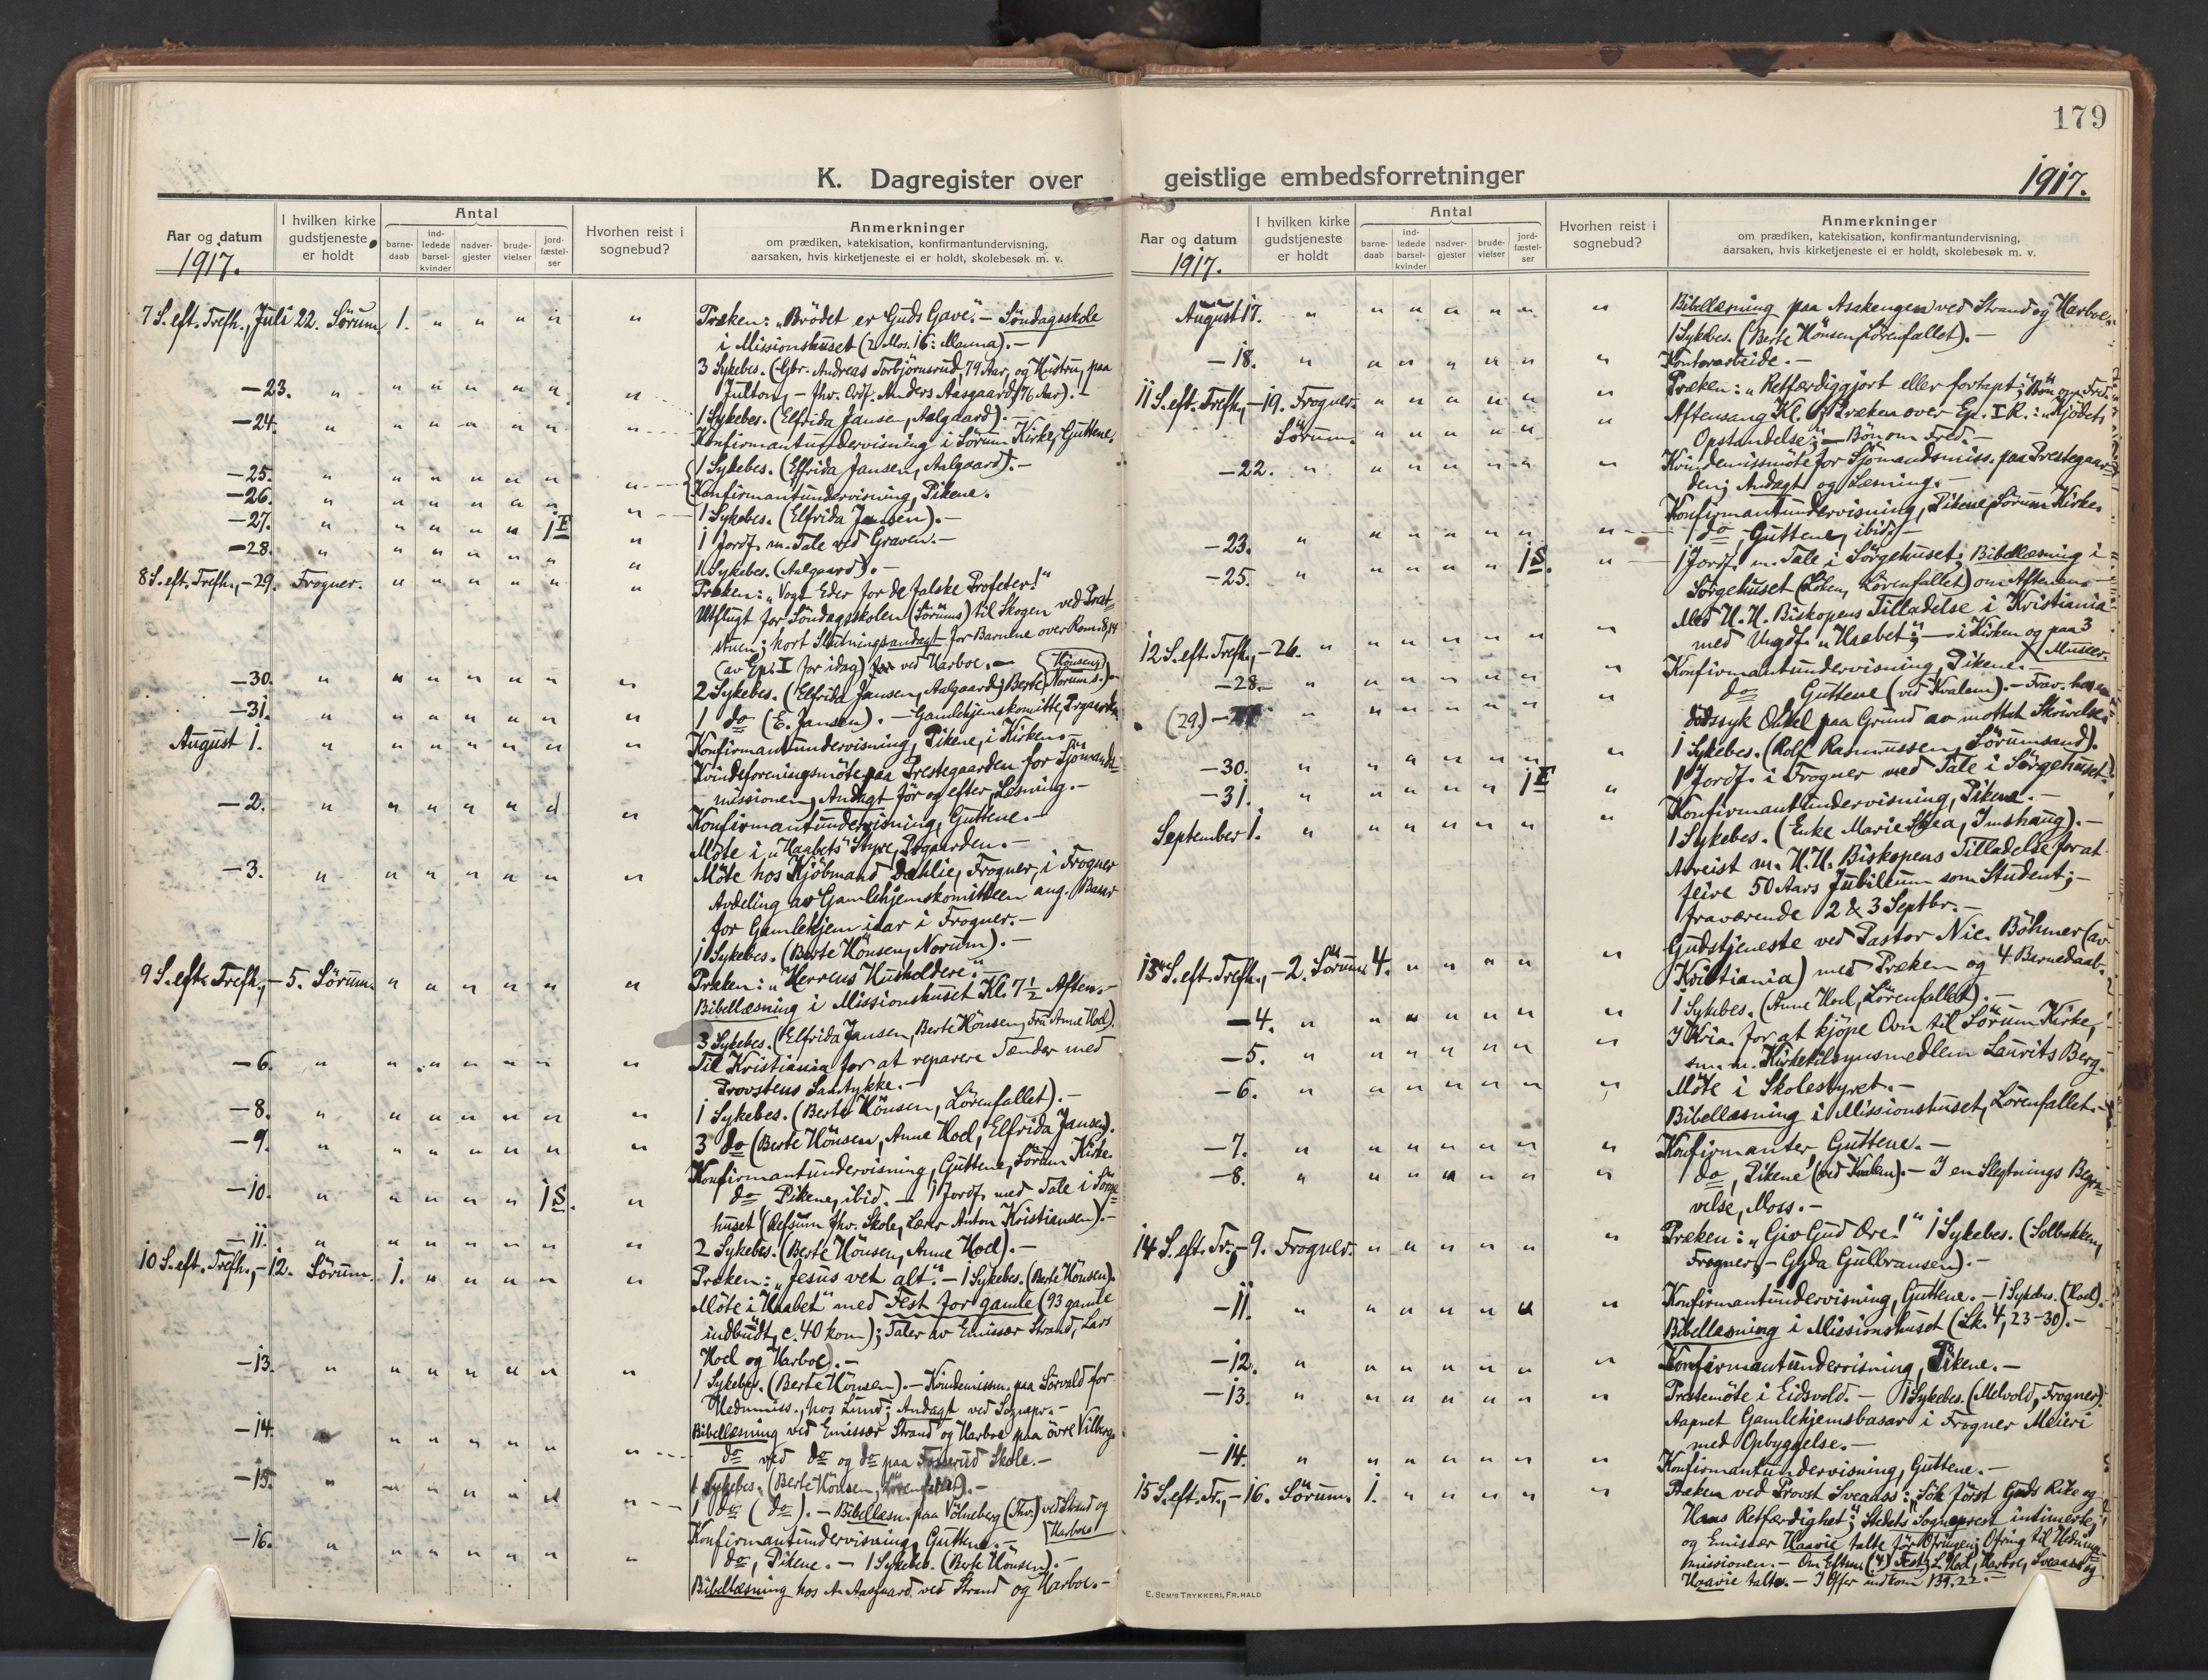 179
K. Dagregister over geistlige embedsforretninger
1917.
Aar og datum
1917.
I hvilken kirke gudstjeneste er holdt
Antal
barne-daab
ind-ledede barsel-kvinder
nadver-gjester
brude-vielser
jord-fæstel-ser
Hvorhen reist i sognebud?
Anmerkninger
om prædiken, katekisation, konfirmantundervisning,
aarsaken, hvis kirketjeneste ei er holdt, skolebesøk m. v.
7 S. eft. Trefh., Juli 22. Sörum 1. " " " " " Præken: „Brödet er Guds Gave". – Söndagsskole
i Missionshuset (2 Mos. 16: Manna). –
3 Sykebes. (Gbr. Andreas Torbjörnsrud, 79 Aar, og Hustru, paa
– 23. " " " " " " " – fhv. Ordf. Anders Aasgaard (76 Aar). –
– 24. " " " " " " " 1 Sykebes. (Elfrida Jansen, Aalgaard). –
Konfirmantundervisning i Sörum Kirke, Guttene.
– 25. " " " " " " " 1 Sykebes. (Elfrida Jansen, Aalgaard). –
Konfirmantundervisning, Pikene.
– 26. " " " " " " " 1 Sykebes. (Elfrida Jansen). –
– 27. " " " " " 1 F " 1 Jordf. m. Tale ved Graven. –
– 28. " " " " " " " 1 Sykebes. (Aalgaard). –
8 S. eft. Trefh., – 29. Frogner. " " " " " " Præken: „Vogt Eder for de falske Profeter!"
Utflugt for Söndagsskolen (Sörums) til Skogen ved Præst-
stuen; kort Slutningsandagt for Barnene over Rom. 8, 14
(av Ep. I for idag) ved Harboe. –
– 30. " " " " " " " 2 Sykebes. (Elfrida Jansen, Aalgaard; Berte Hönsen, Norum s.)
– 31. " " " " " " " 1 do (E. Jansen). – Gamlehjemskomitte, Prgaarden
August 1. " " " " " " " Konfirmantundervisning, Pikene, i Kirken. –
Kvindeforeningsmöte paa Prestegaarden for Sjömands-
missionen, Andagt för og efter Læsning. –
– 2. " " " " " " " Konfirmantundervisning, Guttene. –
Möte i „Haabets" Styre, Prgaarden. –
– 3. " " " " " " " Möte hos Kjöbmand Dahlie, Frogner, i Frogner
Avdeling av Gamlehjemskomitteen ang. Basar
for Gamlehjem iaar i Frogner. –
1 Sykebes. (Berte Hönsen, Norum). –
9 S. eft. Trefh., – 5. Sörum. " " " " " " Præken: „Herrens Husholdere." –
Bibellæsning i Missionshuset Kl. 7½ Aften. –
3 Sykebes. (Elfrida Jansen, Berte Hönsen, Fru Anne Hoel).
– 6. " " " " " " " Til Kristiania for at reparere Tænder med
Provstens Samtykke. –
– 8. " " " " " " " 1 Sykebes. (Berte Hönsen, Lörenfallet). –
– 9. " " " " " " " 3 do (Berte Hönsen, Anne Hoel, Elfrida Jansen).
Konfirmantundervisning, Guttene, Sörum Kirke.
– 10. " " " " " 1 S. " do Pikene, ibid. – 1 Jordf. med Tale i Sörge-
huset (Refsum fhv. Skole, Lærer Anton Kristiansen). –
– 11. " " " " " " " 2 Sykebes. (Berte Hönsen, Anne Hoel). –
10 S. eft. Trefh., – 12. Sörum. 1. " " " " " Præken: „Jesus vet alt". – 1 Sykebes. (Berte Hönsen).
Möte i „Haabet" med Fest for gamle (93 gamle
indbudt, c. 40 kom); Taler av Emissær Strand, Lars
Hoel og Harboe. –
– 13. " " " " " " " 1 Sykebes. (Berte Hönsen). – Kvindemissm. paa Sörvald for
Hedmiss., hos Lund; Andagt ved Sognepr. –
– 14. " " " " " " Bibellæsning ved Emissær Strand og Harboe paa övre Vilberg.
do ved do og do paa Fosserud Skole. –
– 15. " " " " " " " 1 Sykebes. (Berte Hönsen, Lörenfallet). –
1 do (do). – Bibellæsn. paa Völneberg (Fhv.) ved Strand og Harboe
– 16. " " " " " " " Konfirmantundervisning, Guttene. –
do, Pikene. – 1 Sykebes. (Berte Hönsen). –
Bibellæsning hos A. Aasgaard ved Strand og Harboe. –
Aar og datum
1917.
I hvilken kirke gudstjeneste er holdt
Antal
barne-daab
ind-ledede barsel-kvinder
nadver-gjester
brude-vielser
jord-fæstel-ser
Hvorhen reist i sognebud?
Anmerkninger
om prædiken, katekisation, konfirmantundervisning,
aarsaken, hvis kirketjeneste ei er holdt, skolebesøk m. v.
August 17. " " " " " " " Bibellæsning paa Asakengen ved Strand og Harboe.
1 Sykebes. (Berte Hönsen, Lörenfallet). –
– 18. " " " " " " " Kontorarbeide. –
11 S. eft. Trefh., – 19. Frogner. " " " " " " Præken: „Retfærdiggjort eller fortapt"; Bön om Fred.
Sörum. " " " " " " Aftensang Kl. 6; Præken over Ep. I R.: „Kjödets
Opstandelse"; – Bön om Fred. –
– 22. " " " " " " " Kvindemissmöte for Sjömandsmiss. paa Prestegaar-
den; Andagt og Læsning. –
Konfirmantundervisning, Pikene, Sörum Kirke.
– 23. " " " " " " " do, Guttene, ibid. –
– 25. " " " " " 1 S. " 1 Jordf. m. Tale i Sörgehuset; Bibellæsning i
Sörgehuset (Löken, Lörenfallet) om Aftenen. –
12 S. eft. Trefh., – 26. " " " " " " " Med H. H. Biskopens Tilladelse i Kristiania
med Ungdf. „Haabet"; – i Kirken og paa 3 Museer.
– 28. " " " " " " " Konfirmantundervisning, Pikene. –
(29) – " " " " " " " do Guttene (ved Kvalem). – Frav. hos en
dödssyk Onkel paa Grund av mottat Skrivelse.
– 30. " " " " " " " 1 Sykebes. (Rolf Rasmussen, Sörumsand).
– 31. " " " " " 1 F " 1 Jordf. i Frogner med Tale i Sörgehuset.
September 1. " " " " " " " Konfirmantundervisning, Pikene. –
1 Sykebes. (Enke Marie Skea, Imshaug). –
Avreist m. H. H. Biskopens Tilladelse for at
feire 50 Aars Jubileum som Student; –
fraværende 2 & 3 Septbr. –
13 S. eft. Trefh., – 2. Sörum 4. " " " " " Gudstjeneste ved Pastor Nic. Böhmer (av
Kristiania) med Præken og 4 Barnedaab.
– 4. " " " " " " " 1 Sykebes. (Anne Hoel, Lörenfallet). –
– 5. " " " " " " " I Kria. for at kjöpe Ovn til Sörum Kirke,
sm. m. Kirketilsynsmedlem Laurits Berg.
– 6. " " " " " " " Möte i Skolestyret. –
Bibellæsning i Missionshuset, Lörenfallet. –
– 7. " " " " " " " Konfirmanter, Guttene. –
– 8. " " " " " " " do, Pikene (ved Kvalem). – I en Slegtnings Begra-
velse, Moss. –
14 S. eft. Tr., – 9. Frogner. " " " " " " Præken: „Giv Gud Ære!" 1 Sykebes. (Solbakken,
Frogner, – Gyda Gulbransen). –
– 11. " " " " " " " Konfirmantundervisning, Guttene. – 1 Sykebes. (Hoel).
Bibellæsning i Missionshuset (Lk. 4, 23–30). –
– 12. " " " " " " " Konfirmantundervisning, Pikene. –
– 13. " " " " " " " Prestemöte i Eidsvold. – 1 Sykebes. (Melvold, Frogner).
Aapnet Gamlehjemsbasar i Frogner Meieri
med Opbyggelse. –
– 14. " " " " " " " Konfirmantundervisning, Guttene. –
15 S. eft. Tr., – 16. Sörum. 1. " " " " " Præken ved Provst Sveaass: „Sök först Guds Rike og
Hans Retfærdighet"; Stedets Sogneprest intimerte,
og Emissær Haavie talte för Ofringen; Ofring til Hedninge-
missionen. – Om Eftm. (4) Fest; L. Hoel, Harboe, Sveaass og
Haavie talte. – I Offer indkom 139.22. –
E. SEM'S TRYKKERI, FR.HALD